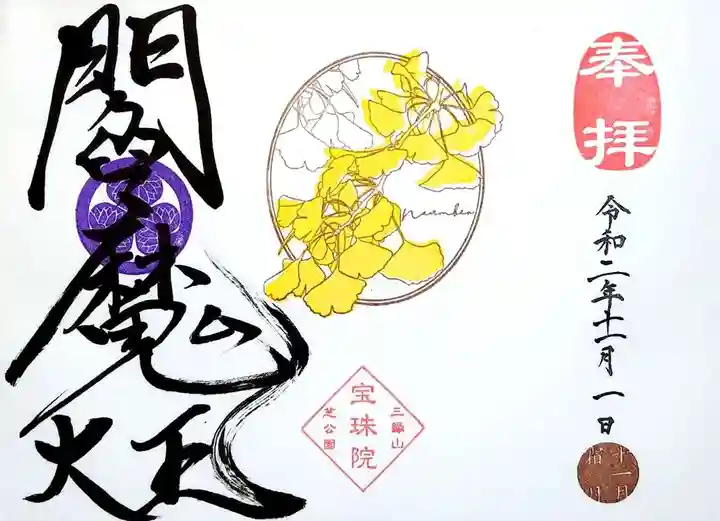 奉拝
令和二年十一月一日
十一月
霜月
November
三縁山
宝珠院
芝公園
閻魔
大王